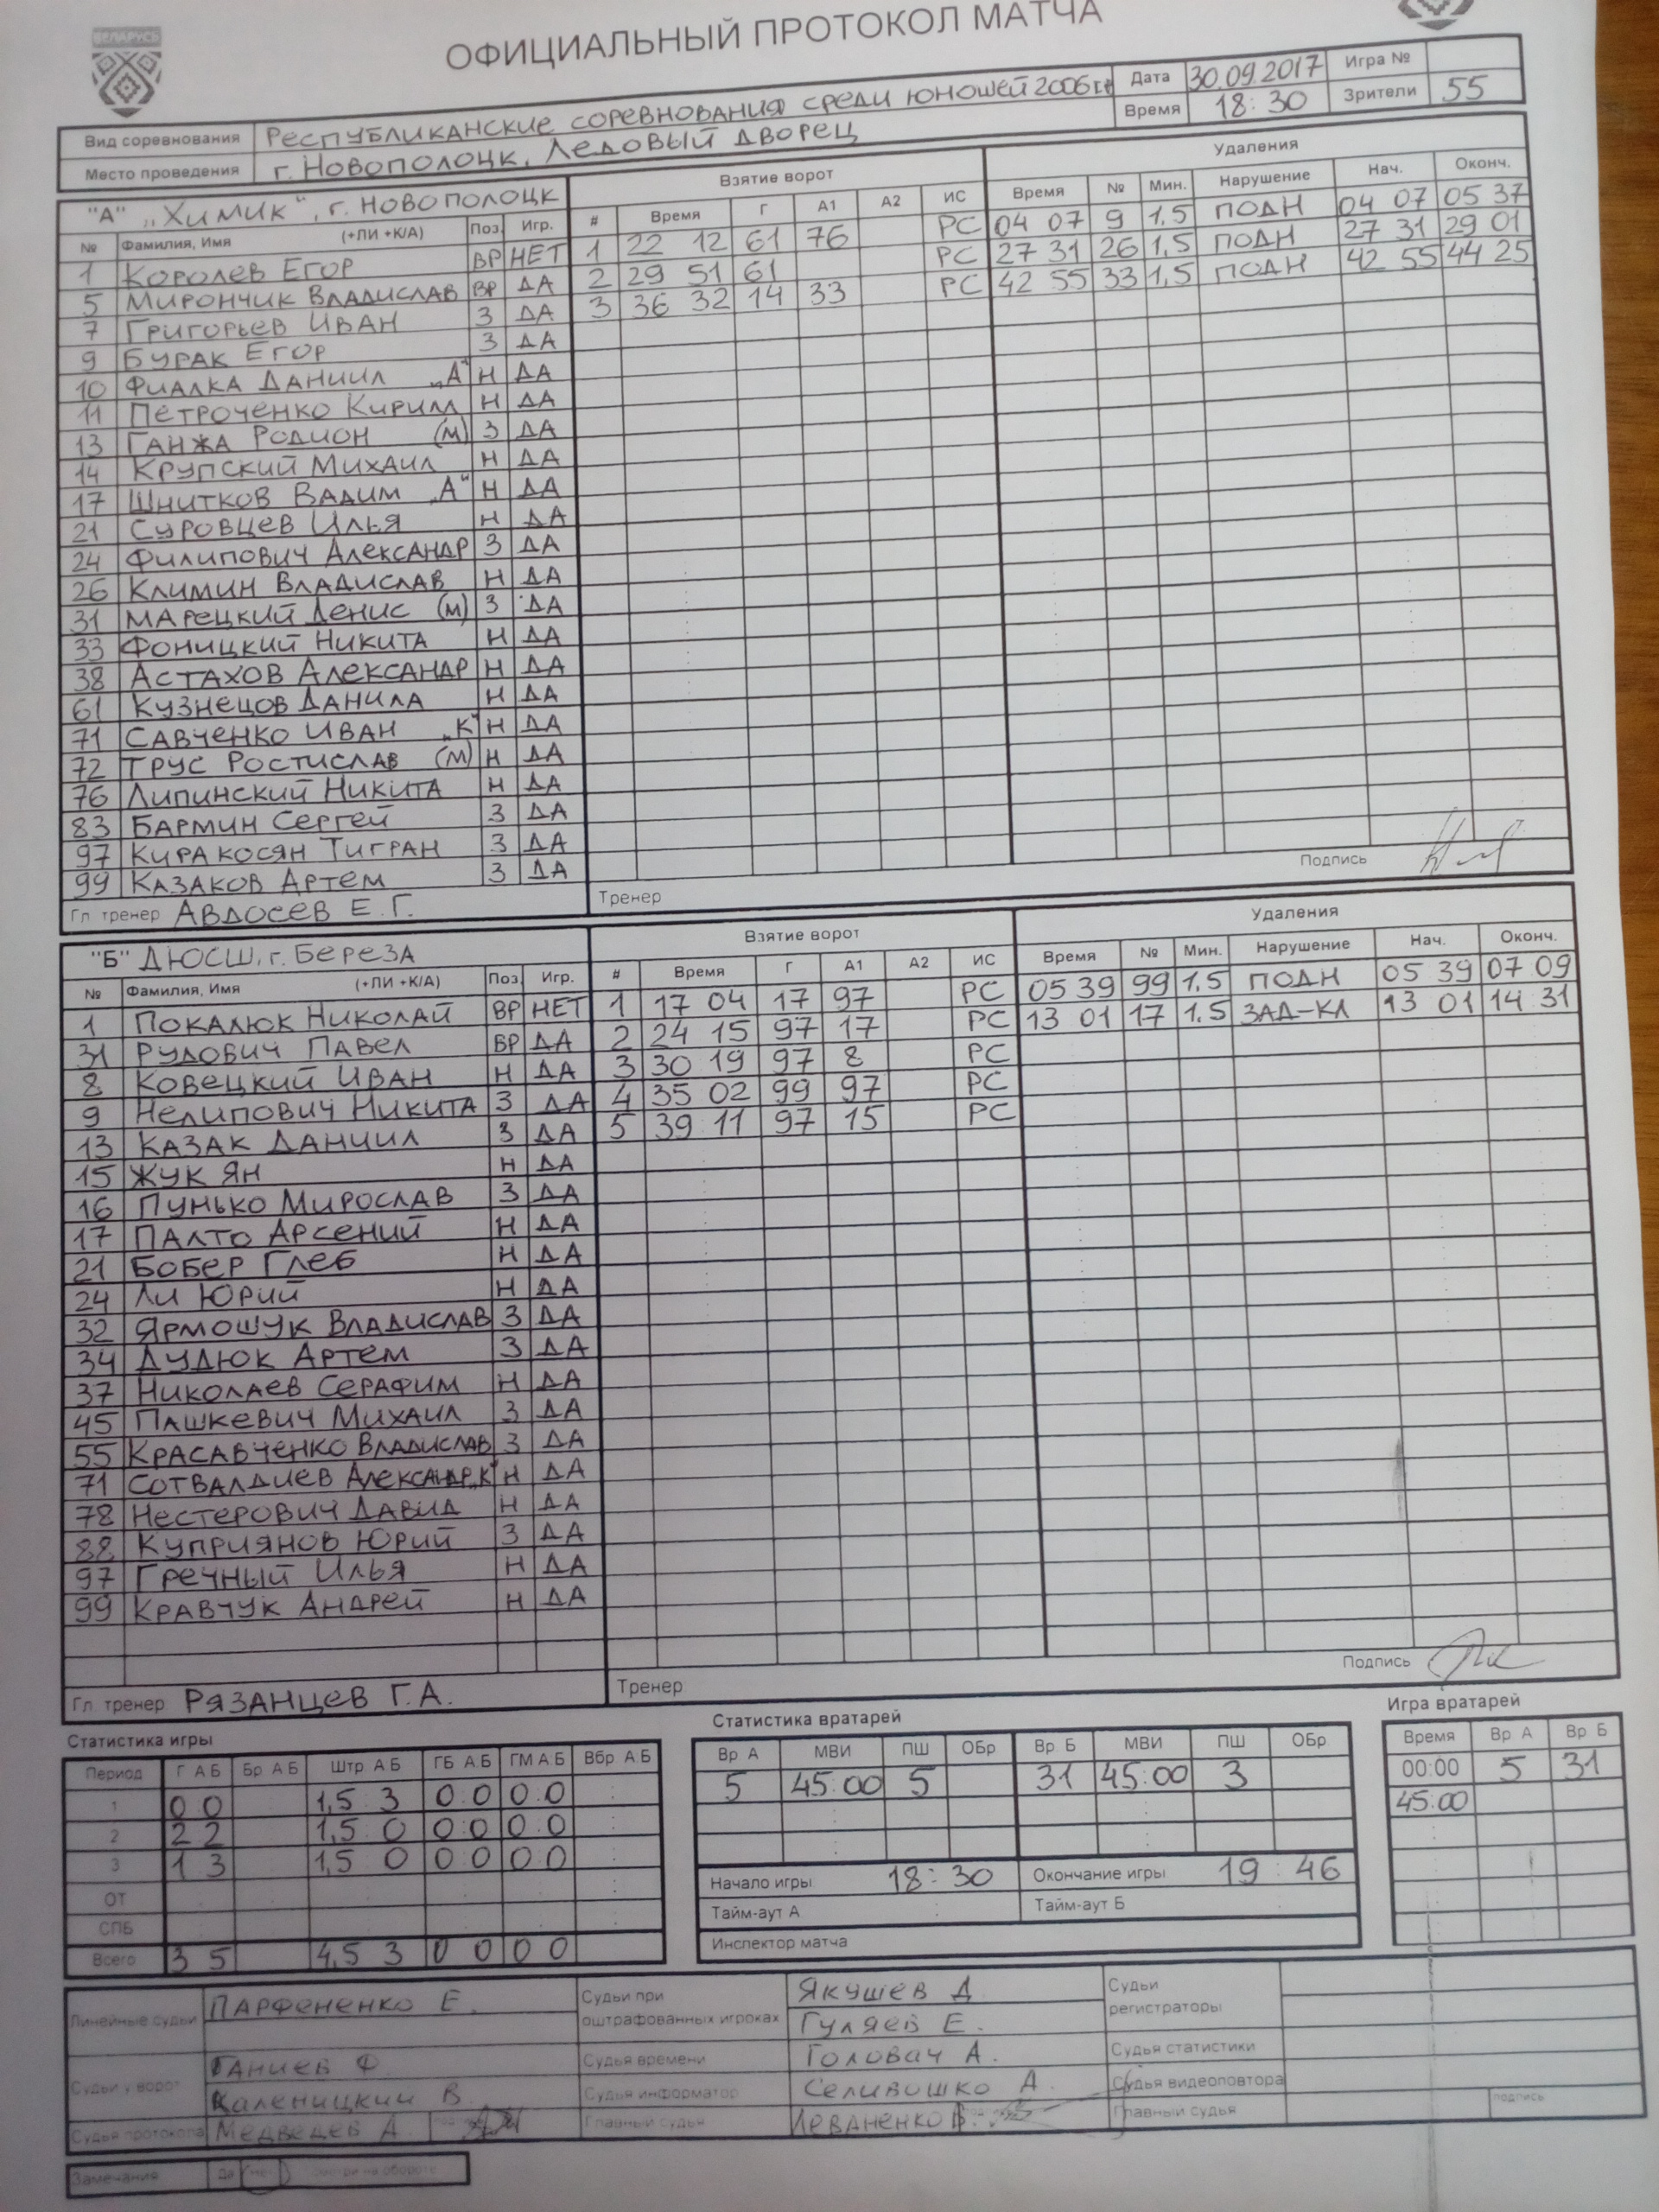 БЕЛАРУСЬ
ОФИЦИАЛЬНЫЙ ПРОТОКОЛ МАТЧА
Вид соревнования Республиканские соревнования среди юношей 2006 г.р Дата 30.09.2017 Игра №
Место проведения г. Новополоцк, Ледовый дворец Время 18:30 Зрители 55
"А" „Химик“, г. Новополоцк Взятие ворот Удаления
№ Фамилия, Имя (+ЛИ +К/А) Поз. Игр. # Время Г А1 А2 ИС Время № Мин. Нарушение Нач. Оконч.
1 Королев Егор ВР НЕТ 1 22 12 61 76 РС 04 07 9 1.5 ПОДН 04 07 05 37
5 Мирончик Владислав ВР ДА 2 29 51 61 РС 27 31 26 1,5 ПОДН 27 31 29 01
7 Григорьев Иван З ДА 3 36 32 14 33 РС 42 55 33 1,5 ПОДН 42 55 44 25
9 Бурак Егор З ДА
10 Фиалка Даниил „А“ Н ДА
11 Петроченко Кирилл Н ДА
13 Ганжа Родион (М) З ДА
14 Крупский Михаил Н ДА
17 Шнитков Вадим „А“ Н ДА
21 Суровцев Илья Н ДА
24 Филипович Александр З ДА
26 Климин Владислав Н ДА
31 Марецкий Денис (М) З ДА
33 Фоницкий Никита Н ДА
38 Астахов Александр Н ДА
61 Кузнецов Данила Н ДА
71 Савченко Иван „К“ Н ДА
72 Трус Ростислав (М) Н ДА
76 Липинский Никита Н ДА
83 Бармин Сергей З ДА
97 Киракосян Тигран З ДА
99 Казаков Артем З ДА
Гл. тренер Авдосев Е.Г. Тренер Подпись
"Б" ДЮСШ, г. Береза Взятие ворот Удаления
№ Фамилия, Имя (+ЛИ +К/А) Поз. Игр. # Время Г А1 А2 ИС Время № Мин. Нарушение Нач. Оконч.
1 Покалюк Николай ВР НЕТ 1 17 04 17 97 РС 05 39 99 1.5 ПОДН 05 39 07 09
31 Рудович Павел ВР ДА 2 24 15 97 17 РС 13 01 17 1.5 ЗАД-КЛ 13 01 14 31
8 Ковецкий Иван Н ДА 3 30 19 97 8 РС
9 Нелипович Никита З ДА 4 35 02 99 97 РС
13 Казак Даниил З ДА 5 39 11 97 15 РС
15 Жук Ян Н ДА
16 Пунько Мирослав З ДА
17 Палто Арсений Н ДА
21 Бобер Глеб Н ДА
24 Ли Юрий Н ДА
32 Ярмошук Владислав З ДА
34 Дудюк Артем З ДА
37 Николаев Серафим Н ДА
45 Пашкевич Михаил З ДА
55 Красавченко Владислав З ДА
71 Сотвалдиев Александр „К“ Н ДА
78 Нестерович Давид Н ДА
88 Куприянов Юрий З ДА
97 Гречный Илья Н ДА
99 Кравчук Андрей Н ДА
Гл. тренер Рязанцев Г.А. Тренер Подпись
Статистика игры Статистика вратарей Игра вратарей
Период Г А Б Бр А Б Штр А Б ГБ А Б ГМ А Б Вбр А Б Вр А МВИ ПШ ОБр Вр Б МВИ ПШ ОБр Время Вр А Вр Б
1 0 0 1,5 3 0:0 0:0 5 45:00 5 31 45:00 3 00:00 5 31
2 2 2 1,5 0 0:0 0:0 45:00
3 1 3 1,5 0 0 0 0 0
ОТ Начало игры 18:30 Окончание игры 19:46
СПБ Тайм-аут А Тайм-аут Б
Всего 3 5 4,5 3 0 0 0 0 Инспектор матча
Линейные судьи Парфененко Е. Судьи при оштрафованных игроках Якушев Д Судьи регистраторы
Гуляев Е.
Судьи у ворот Ганиев Ф Судья времени Головач А. Судья статистики
Каленицкий В. Судья информатор Селивошко А. Судья видеоповтора
Судья протокола Медведев А. Главный судья Леваненко В. Главный судья подпись
Замечания Да Нет смотри на обороте